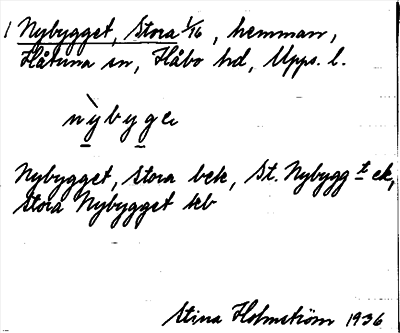 1 Nybygget, Stora 1/16, hemman,
Håtuna sn, Håbo hd, Upps. l.
nỳbyge
Nybygget, Stora bek, St. Nybygg t ek,
Stora Nybygget kb
Stina Holmström 1936